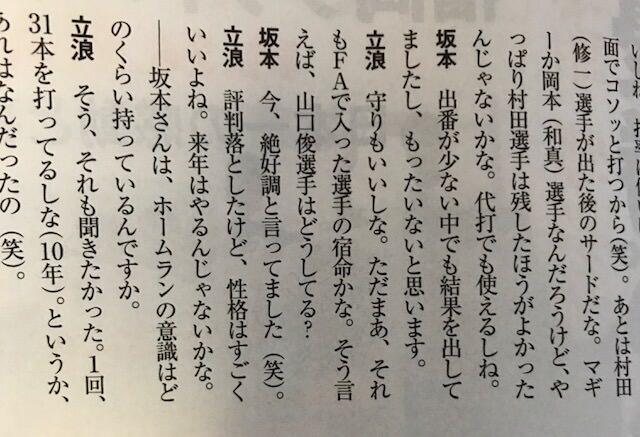 面でコソッと打つから(笑)。あとは村田
(修一)選手が出た後のサードだな。マギ
ーか岡本(和真)選手なんだろうけど、や
っぱり村田選手は残したほうがよかった
んじゃないかな。代打でも使えるしね。
坂本 出番が少ない中でも結果を出して
ましたし、もったいないと思います。
立浪 守りもいいしな。ただまあ、それ
もFAで入った選手の宿命かな。そう言
えば、山口俊選手はどうしてる?
坂本 今、絶好調と言ってました(笑)。
立浪 評判落としたけど、性格はすごく
いいよね。来年はやるんじゃないかな。
──坂本さんは、ホームランの意識はど
のくらい持っているんですか。
立浪 そう、それも聞きたかった。1回、
31本を打ってるしな(10年)。というか、
あれはなんだったの(笑)。